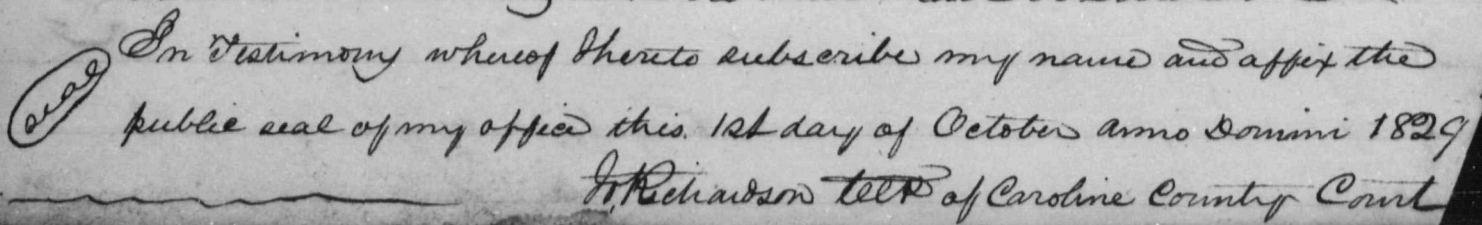 In Testimony whereof I hereto subscribe my name and affix the
seal
public seal of my office this 1st day of October Anno Domini 1829
Jo. Richardson Clk of Caroline County Court